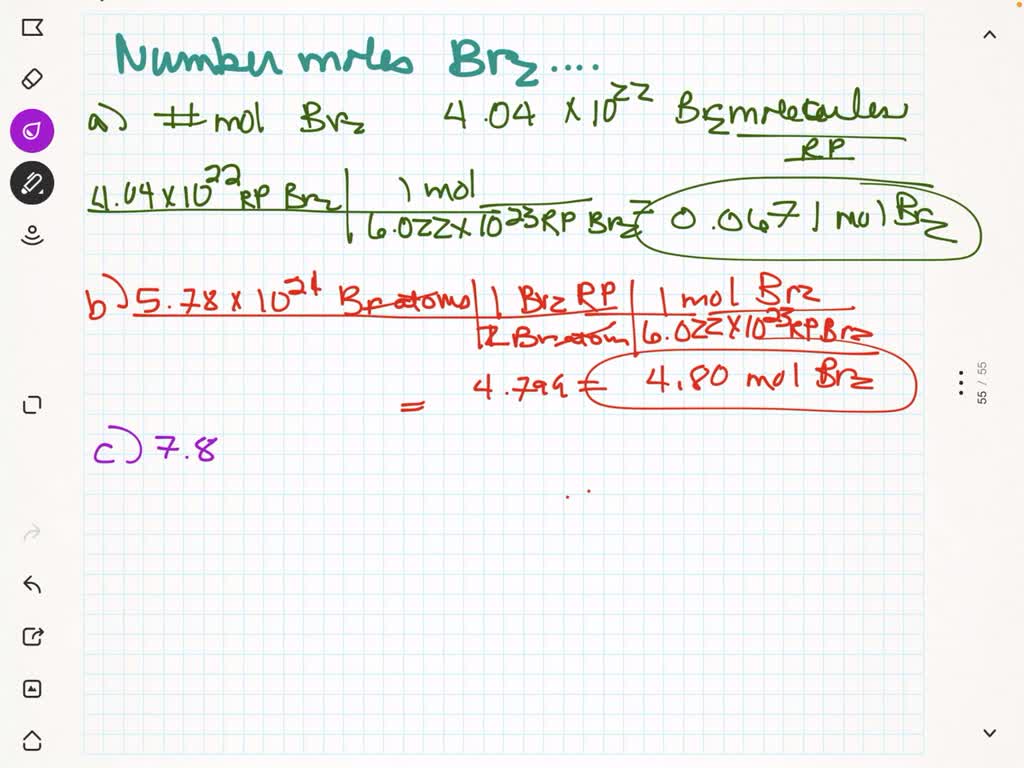 Number moles Br₂....
a) # mol Br₂ 4.04 × 10²² Br₂ molecules
RP
4.04 × 10²² RP Br₂ | 1 mol
6.022 × 10²³ RP Br₂ = 0.0671 mol Br₂
b) 5.78 × 10²⁴ Br atoms | 1 Br₂ RP | 1 mol Br₂
2 Br atom | 6.022 × 10²³ RP Br₂
= 4.799 = 4.80 mol Br₂
c) 7.8
55 / 55